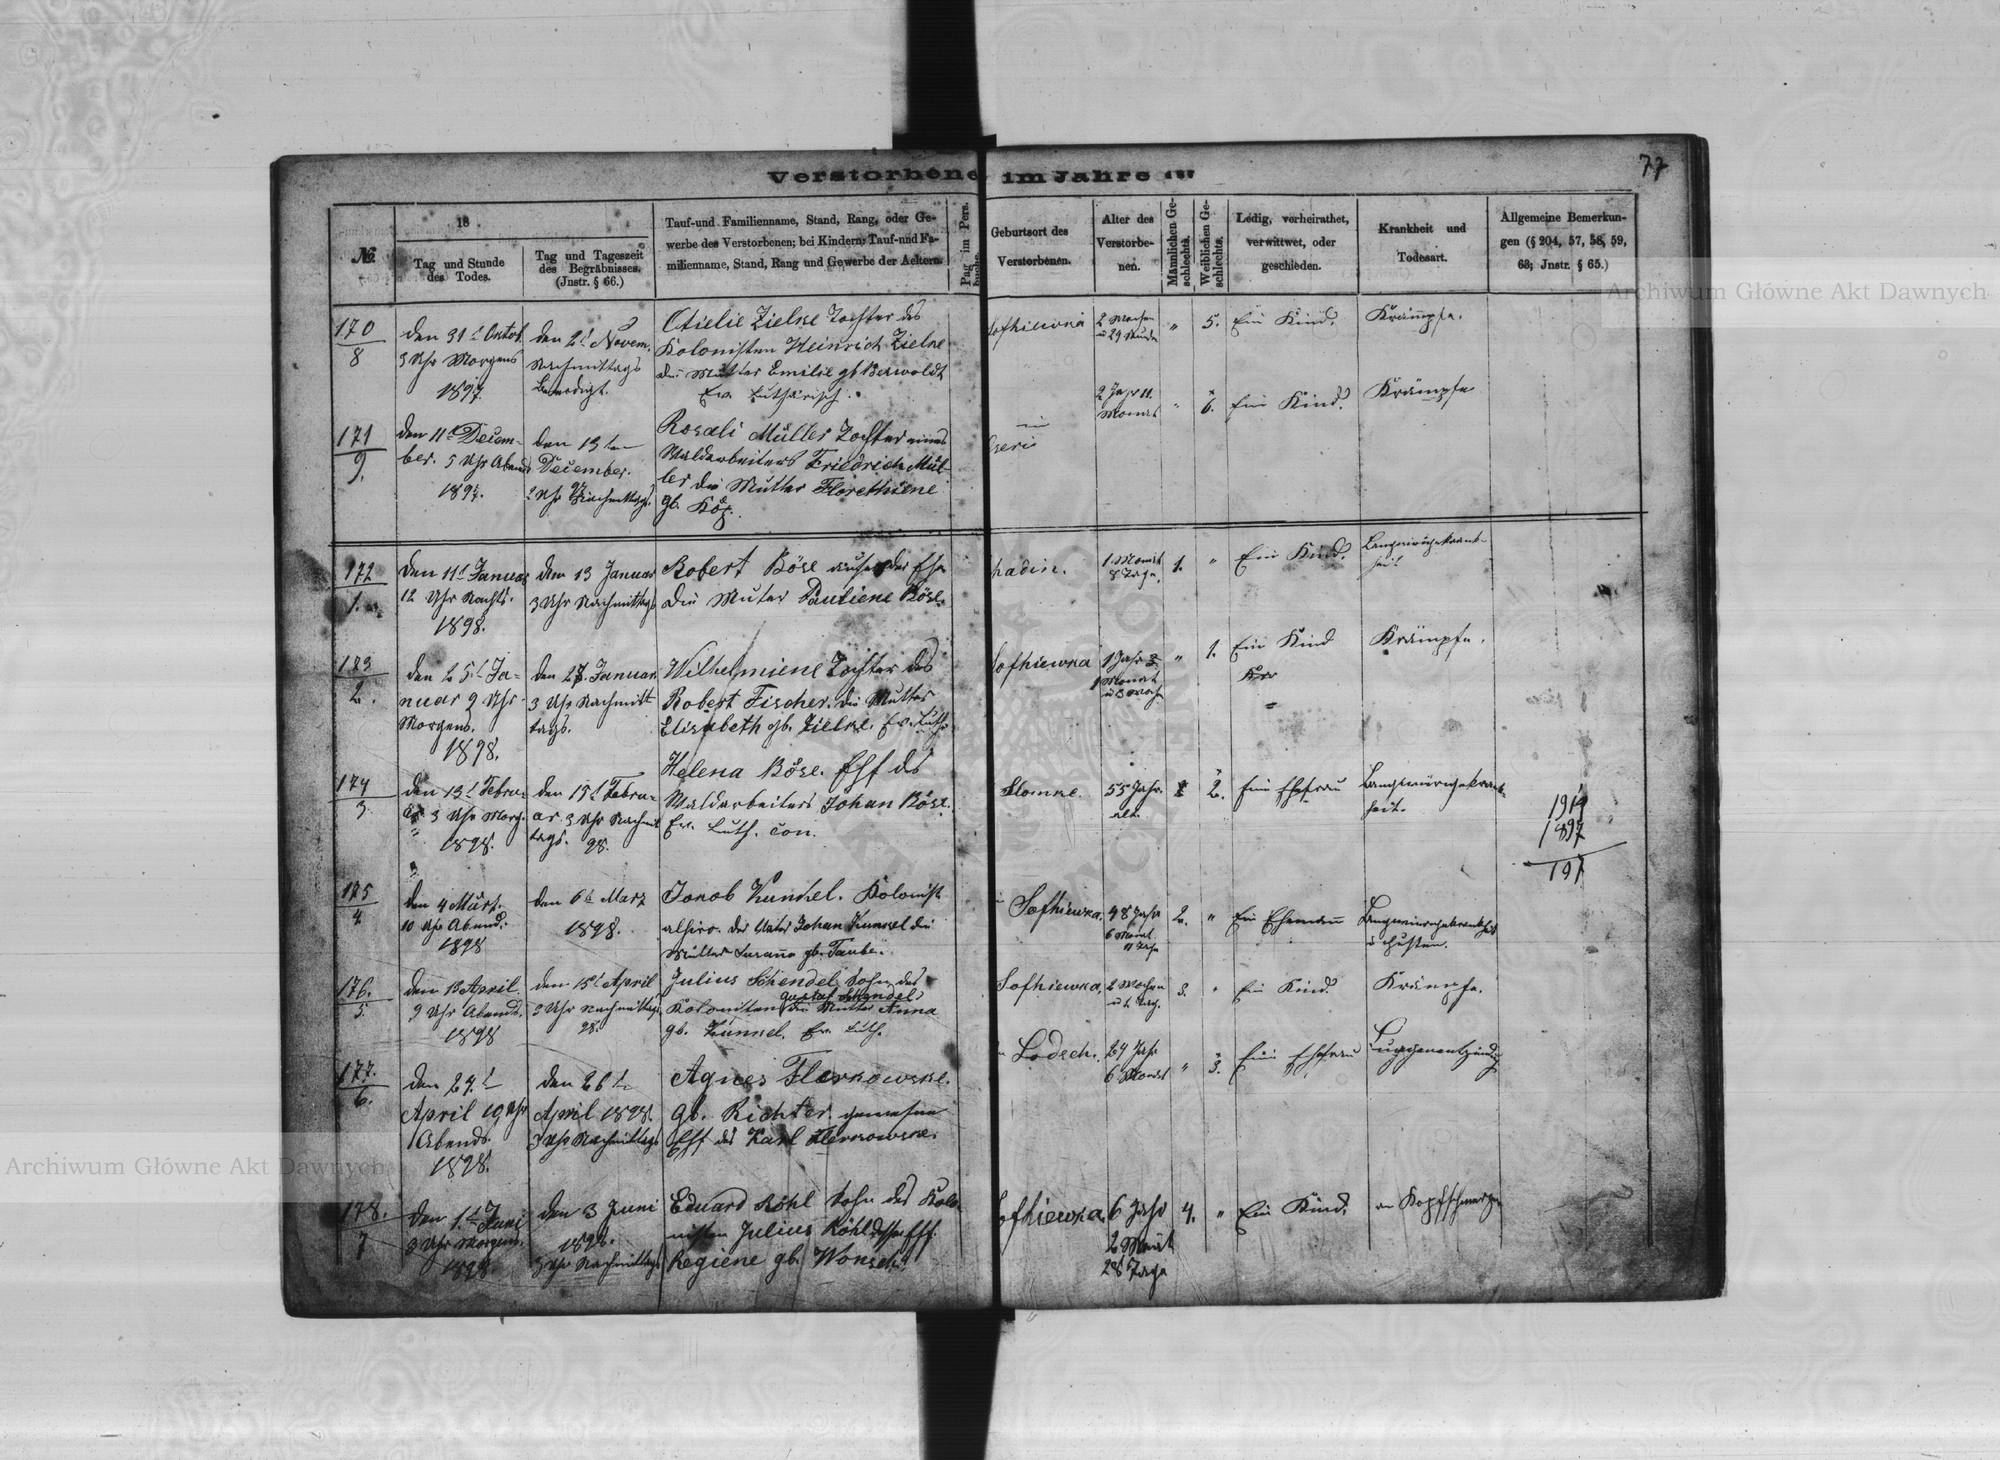 77
Verstorbene im Jahre
№
18 .
Tag und Stunde
des Todes.
Tag und Tageszeit
des Begräbnisses.
(Jnstr. § 66.)
Tauf-und Familienname, Stand, Rang, oder Ge-
werbe des Verstorbenen; bei Kindern: Tauf-und Fa-
milienname, Stand, Rang und Gewerbe der Aeltern.
Pag. im Pers.
buche.
Geburtsort des
Verstorbenen.
Alter des
Verstorbe-
nen.
Männlichen Ge-
schlechts.
Weiblichen Ge-
schlechts.
Ledig, verheirathet,
verwittwet, oder
geschieden.
Krankheit und
Todesart.
Allgemeine Bemerkun-
gen (§ 204, 57, 58, 59,
63; Jnstr. § 65.)
170
8
den 31t Oktob.
3 Uhr Morgens
1897.
den 2t Novem.
Nachmittags
Beerdigt.
Zielke Tochter des
Kolonisten Heinrich Zielke
die Mutter Emilie gb Berwoldt
Ev. Lutherisch.
Sofhiewka
2 Wochen
5.
Ein Kind.
Krämpfe.
171
9.
den 11t Decem-
ber. 5 Uhr Abend
1897.
den 13ten
December.
2 Uhr Nachmittags.
97
Rosali Müller Tochter eines
Waldarbeiters Friedrich Mül-
ler die Mutter
gb.
2 Jahr 11
Monat
6.
Ein Kind.
Krämpfe
172
1.
den 11t Januar
12 Uhr Nachts.
1898.
den 13 Januar
3 Uhr Nachmittags
Robert Böse außer der Ehe
die Mutter Pauliene Böse.
1 Monat
8 Tage.
1.
"
Ein Kind.
173
2.
den 25t Ja-
nuar 9 Uhr
Morgens.
1898.
den 27. Januar
3 Uhr Nachmitt
tags.
Wilhelmiene Tochter des
Robert Fischer. die Mutter
Elisabeth gb. Zielke. Ev. Luth.
Sofhiewka
1 Jahr
1 Monat
"
1.
Ein Kind
Krämpfe.
174
3.
den 13t Febru-
ar 3 Uhr Morg.
1898.
den 15t Febru-
ar. 3 Uhr Nachmit
tags. 98.
Helena Böse. Ehf des
Waldarbeiters Johan Böse.
Ev. Luth. Con.
Slomke.
55 Jahr.
alt.
2.
Ein Ehefrau
1919
1897
197
175
4
den 4 März.
10 Uhr Abend.
1898
den 6t März
1898.
Jakob Kunkel. Kolonist
der Vater Johan Kunkel die
Mutter Susanna gb. Taube.
Sofhiewka.
48 Jahr
6 Monat
11 Tage
2.
"
Ein Ehemann
u Husten.
176.
5.
den 13 April
9 Uhr Abends.
1898
den 15t April
3 Uhr Nachmittags
98.
Julius Schendel Sohn des
Gustaf Schendel
Kolonisten die Mutter Anna
gb. Kunkel. Ev. Luth.
Sofhiewka.
2 Wochen
3.
"
Ein Kind.
Krämpfe.
177.
6.
den 24.t
April 10 Uhr
Abends.
1898.
den 26t
April 1898.
3 Uhr Nachmittags
Agnes
gb. Richter. gewesene
Ehf des Karl
Lodsch.
24 Jahr
6 Monat
"
3.
Ein Ehefrau
Lungenentzündung
178.
7
den 1.t Juni
8 Uhr Morgens.
1898.
den 3 Juni
1898.
3 Uhr Nachmittags
Eduard Röhl Sohn des Kolo-
nisten Julius Röhl
Regiene gb. Wonsch.
Sofhiewka.
6 Jahr
2 Monat
28 Tage
4.
"
Ein Kind.
an Kopfschmerzen
Archiwum Główne Akt Dawnych
Archiwum Główne Akt Dawnych